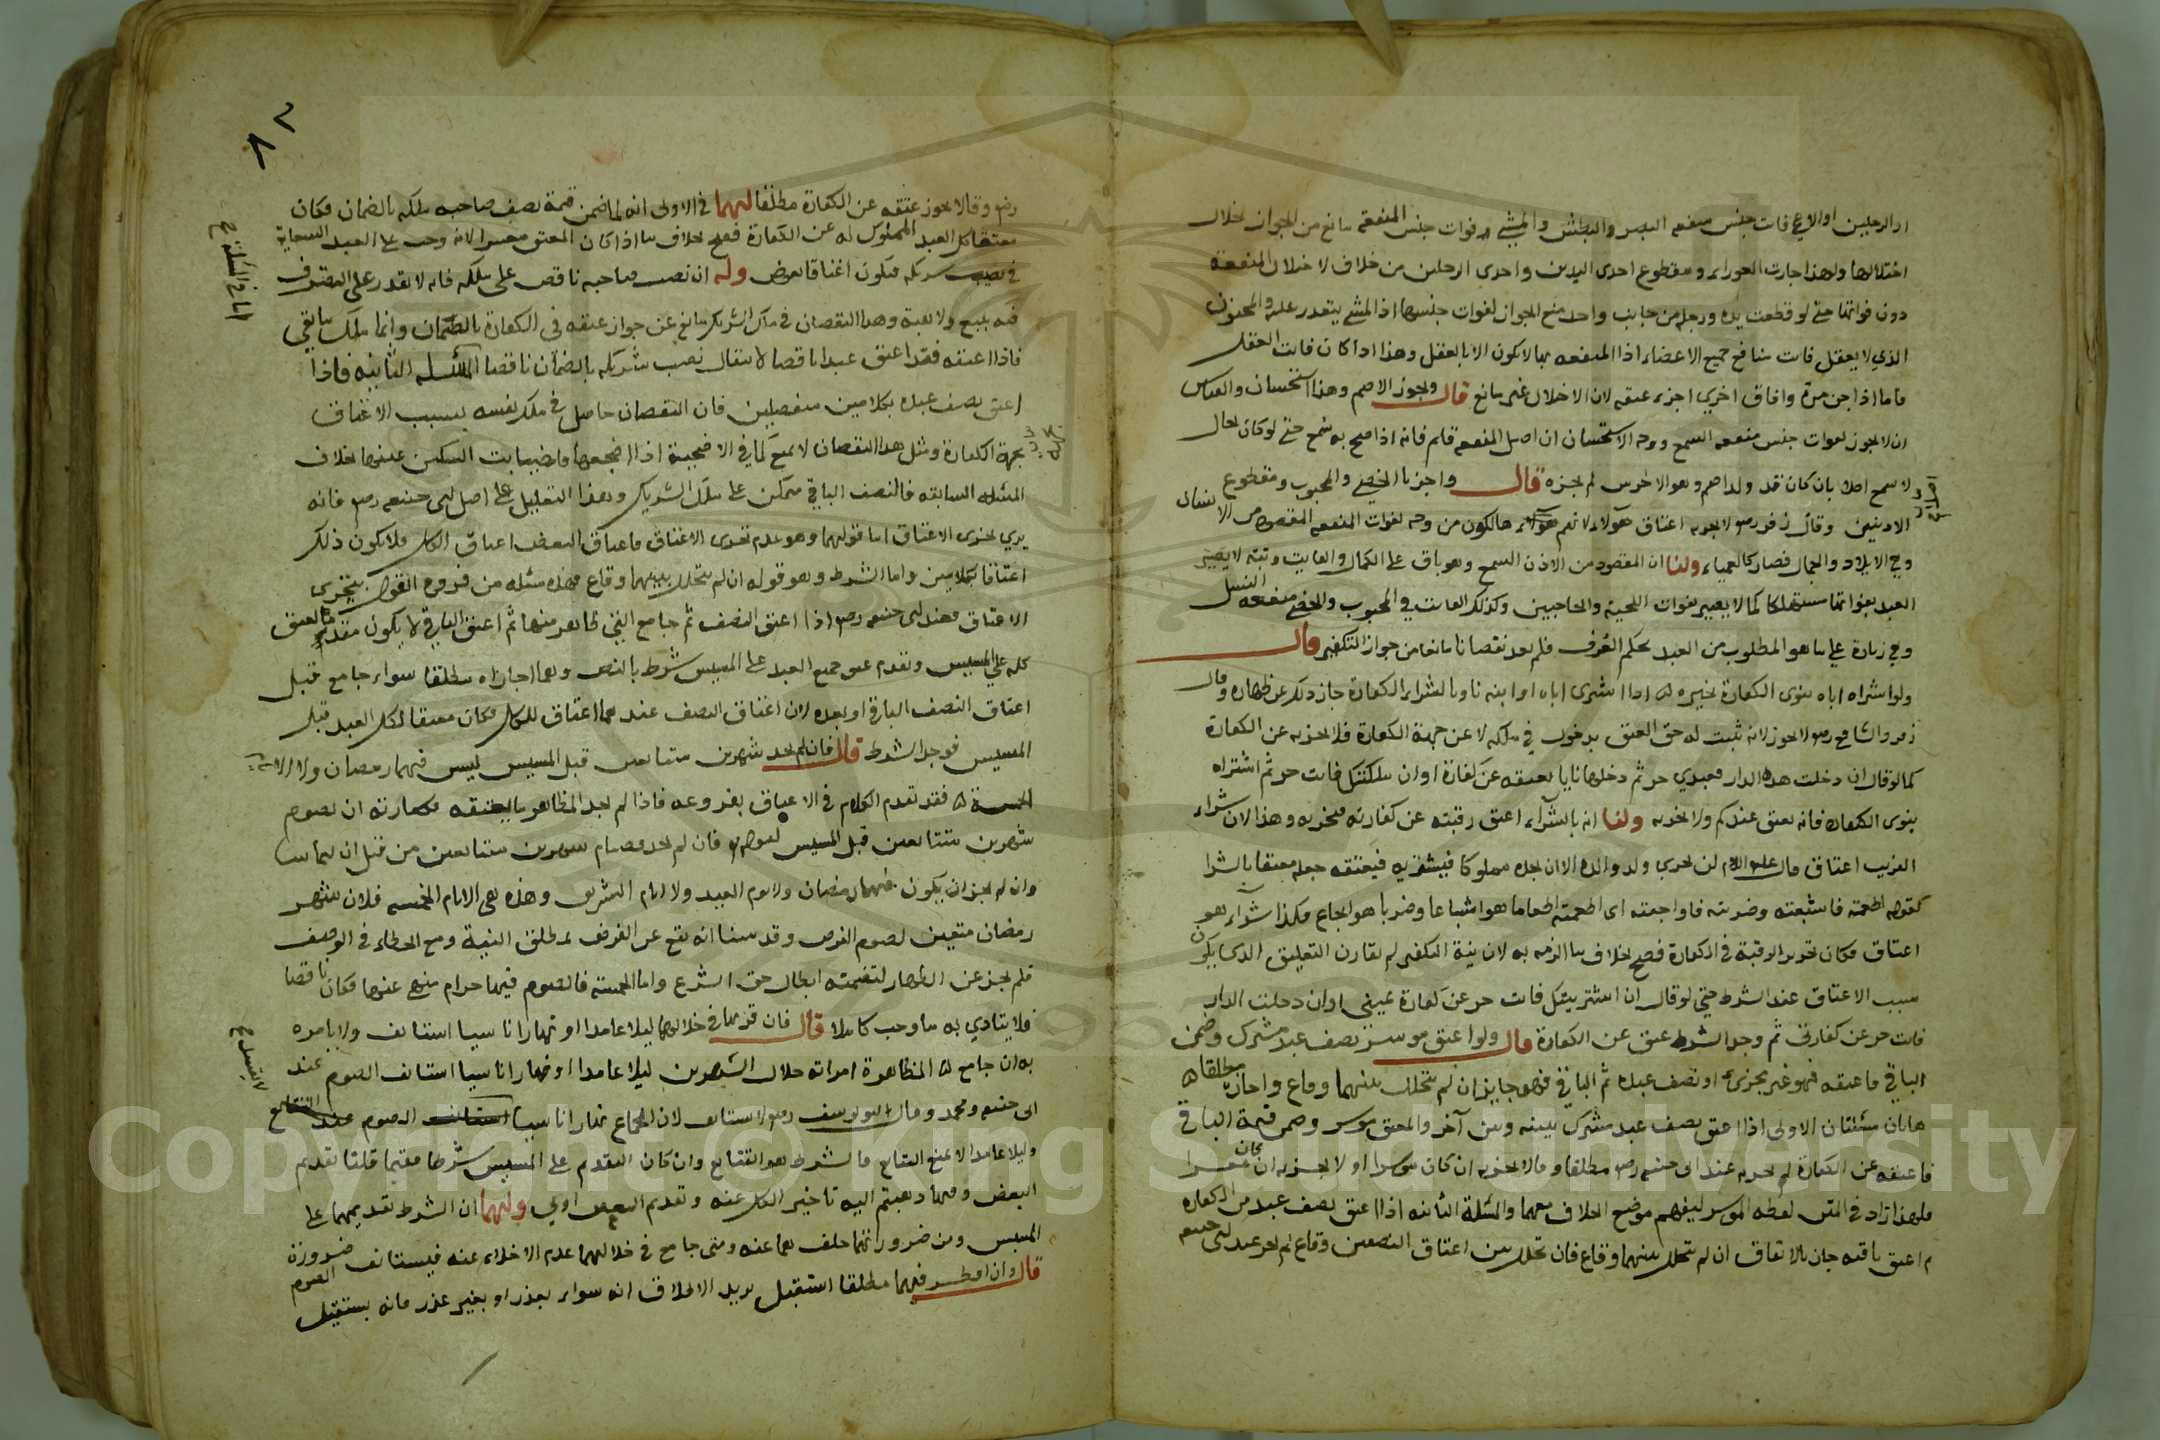 او الرجلين او الاعمى فات جنس منفعة البصر والبطش والمشي وفوات جنس المنفعة مانع من الجواز بخلاف
اختلالها ولهذا جازت العوراء ومقطوع احدى اليدين واحدى الرجلين من خلاف لاختلال المنفعة
دون فواتها حتى لو قطعت يده ورجله من جانب واحد منع الجواز لفوات جنسها اذ المشي يتعذر عليه والمجنون
الذي لا يعقل فات منافع جميع الاعضاء اذ المنفعة بها لا تكون الا بالعقل وهذا اذا كان فايت العقل
فاما اذا جن مرة وافاق اخرى اجزء عتقه لان الاختلال غير مانع قال ويجوز الاصم وهذا استحسان والقياس
ان لا يجوز لفوات جنس منفعة السمع ووجه الاستحسان ان اصل المنفعة قايم فانه اذا صيح به سمع حتى لو كان بحال
لا يسمع اصلا بان كان قد ولد اصم وهو الاخرس لم يجزه قال واجزنا الخصي والمجبوب ومقطوع
الاذنين وقال زفر رحمه لا يجوز اعتاق هؤلاء لانهم هالكون من وجه لفوات المنفعة المقصودة من الانفعال
وهي الايلاد والجمال فصار كالعمياء ولنا ان المقصود من الاذن السمع وهو باق على الكمال والفايت زينة لا يصير
العبد بفواتها مستهلكا كما لا يصير بفوات اللحية والحاجبين وكذلك الفايت في المجبوب والخصي منفعة النسل
وهي زيادة على ما هو المطلوب من العبد بحكم العرف فلم يعد نقصانا مانعا من جواز التكفير قال
ولو اشراه اباه بنوى الكفارة نجيزه ۵ اذا اشترى اباه او ابنه ناويا بالشراء الكفارة جاز ذلك عن ظهاره وقال
زفر والشافعي رحمه لا يجوز لانه ثبت له حق العتق بدخوله في ملكه لا عن جهة الكفارة فلا يجزيه عن الكفارة
كما لو قال ان دخلت هذه الدار فعبدي حر ثم دخلها ناويا بعتقه عن كفارة او ان ملكتك فانت حر ثم اشتراه
ينوى الكفارة فانه يعتق عندكم ولا يجزيه ولنا انه بالشراء اعتق رقبته عن كفارته فيجزيه وهذا لان شراء
القريب اعتاق قال عليه السلام لن يجزي ولد والده الا ان يجده مملوكا فيشتريه فيعتقه جعله معتقا بالشرا
كقوله اطعمته فاشبعته وضربته فاوجعته اى اطعمته اطعاما هو اشباعا وضربا هو ايجاع فكذا شراء هو
اعتاق فكان تحرير الرقبة في الكفارة فصح بخلاف ما الزمه به لان نية التكفير لم تقارن التعليق الذي يكون
سبب الاعتاق عند الشرط حتى لو قال ان اشتريتك فانت حر عن كفارة يميني او ان دخلت الدار
فانت حر عن كفارتي ثم وجد الشرط عتق عن الكفارة قال ولو اعتق موسر نصف عبد مشترك وضمن
الباقي فاعتقه فهو غير مجزئ او نصف عبده ثم الباقي فهو جايز ان لم يتخلل بينهما وقاع واجازه مطلقا ۵
هاتان مسئلتان الاولى اذا اعتق نصف عبد مشترك بينه وبين آخر والمعتق موسر وضمن قيمة الباقي
فاعتقه عن الكفارة لم يجزه عند ابى حنيفه رحمه مطلقا وقالا يجزيه ان كان موسرا او لا يجزيه ان كان معسرا
فلهذا زاد في المتن لفظه الموسر ليفهم موضع الخلاف معهما والمسئلة الثانية اذا اعتق نصف عبد من الكفارة
ثم اعتق باقيه جاز بالاتفاق ان لم يتخلل بينهما وقاع فان تخلل بين اعتاق النصفين وقاع لم يجز عند ابى حنيفة
٨٢
رحمه وقالا يجوز عتقه عن الكفارة مطلقا لهما في الاولى انه لما ضمن قيمة نصف صاحبه ملكه بالضمان فكان
معتقا كل العبد المملوك له عن الكفارة فصح بخلاف ما اذا كان المعتق معسرا لانه وجب على العبد السعاية
في نصيب شريكه فيكون اعتاقا بعوض وله ان نصيب صاحبه ناقص على ملكه فانه لا يقدر على التصرف
فيه ببيع ولا بهبة وهذا النقصان في ملك الشريك مانع عن جواز عتقه في الكفارة بالضمان وانما ملك ما بقي
فاذا اعتقه فقد اعتق عبدا ناقصا لانتقال نصيب شريكه بالضمان ناقصا المسئلة الثانية فاذا
اعتق نصف عبده بكلامين منفصلين فان النقصان حاصل في ملك نفسه بسبب الاعتاق
بجهة الكفارة ومثل هذا النقصان لا يمنع كما في الاضحية اذا اضجعها فاصابت السكين عينها بخلاف
المسئله السابقه فالنصف الباقي متمكن على ملك الشريك وهذا التعليل على اصل ابى حنيفه رحمه فانه
يرى تجزى الاعتاق اما قولهما وهو عدم تجزى الاعتاق فاعتاق البعض اعتاق الكل فلا يكون ذلك
اعتاقا بكلامين واما الشرط وهو قوله ان لم يتخلل بينهما وقاع فهذه مسئله من فروع القول بتجزى
الاعتاق فعند ابى حنيفه رحمه اذا اعتق النصف ثم جامع التي ظاهر منها ثم اعتق الباقي لا يكون مقدما لعتق
كله على المسيس وتقدم عتق جميع العبد على المسيس شرط بالنص وهما اجازاه مطلقا سواء جامع قبل
اعتاق النصف الباقي او بعده لان اعتاق النصف عندهما اعتاق للكل فكان معتقا لكل العبد قبل
المسيس فوجد الشرط قال فان لم يجد شهرين متتابعين قبل المسيس ليس فيهما رمضان ولا الايام
الخمسة ۵ فقد تقدم الكلام في الاعتاق بفروعه فاذا لم يجد المظاهر ما يعتقه فكفارته ان يصوم
شهرين متتابعين قبل المسيس لقوله فان لم يجد فصيام شهرين متتابعين من قبل ان يتماسا
وان لم يجز ان يكون فيهما رمضان ولا يوم العيد ولا ايام التشريق وهذه هى الايام الخمسه فلان شهر
رمضان متعين لصوم الفرض وقد بينا انه يقع عن الفرض بمطلق النية ومع الخطاء في الوصف
فلم يجز عن الظهار لتضمنه ابطال حق الشرع واما الخمسة فالصوم فيها حرام منهي عنها فكان ناقصا
فلا يتادي به ما وجب كاملا قال فان قربها في خلالهما ليلا عامدا او نهارا ناسيا استانف ولا يامره
به ان جامع ۵ المظاهرة امراته خلال الشهرين ليلا عامدا او نهارا ناسيا استانف الصوم عند
ابى حنيفه ومحمد وقال ابو يوسف رحمه لا يستانف لان الجماع نهارا ناسيا
وليلا عامدا لا يمنع التتابع فالشرط هو التتابع وان كان التقدم على المسيس شرطا ففيما قلنا تقديم
البعض وفيما ذهبتم اليه تاخير الكل عنه وتقديم البعض اولى ولهما ان الشرط تقديمهما على
المسيس ومن ضرورتهما خلوهما عنه ومتى جامع في خلالهما عدم الاخلاء عنه فيستانف ضرورة
قال وان افطر فيهما مطلقا استقبل يريد الاطلاق انه سواء بعذر او بغير عذر فانه يستقبل الصوم
Copyright © King Saud University